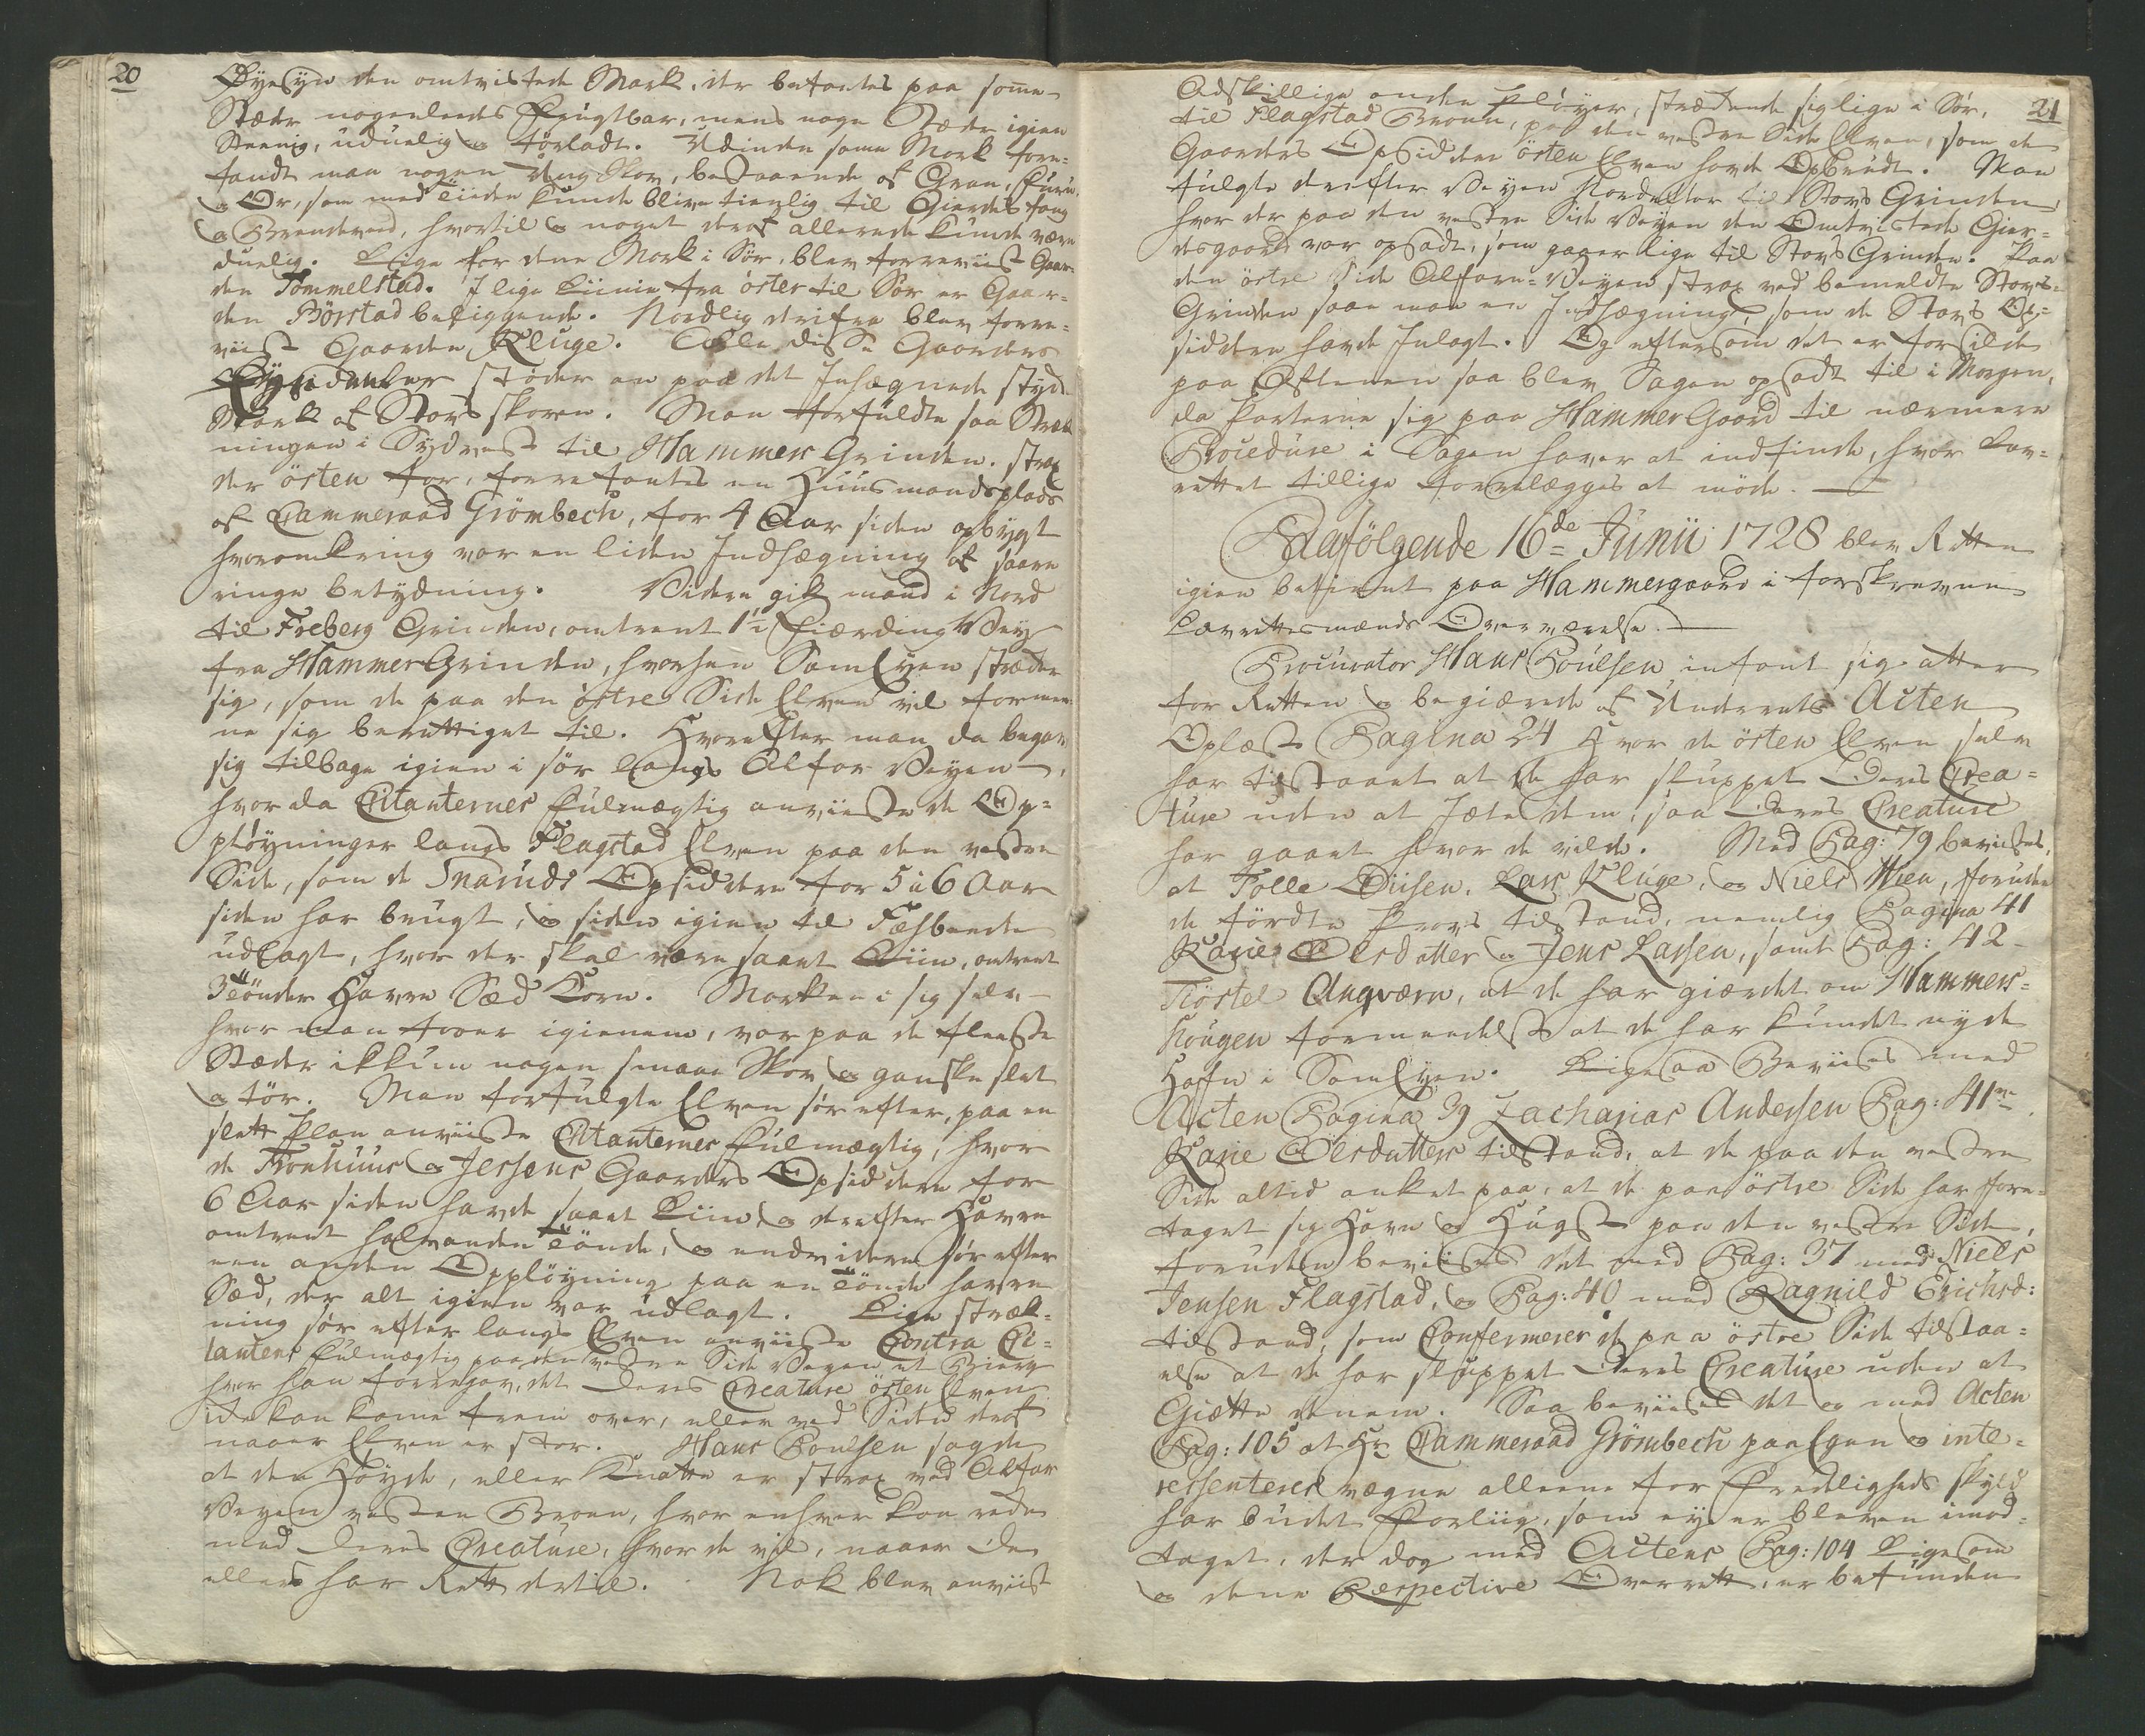 20
Øyesyn den omtvistede Mark, der befantes paa somme
Stæder nogenleedes Frugtbar, mens noge Stæder igien
Steenig, uduelig og tørladt. Udinden samme Mark fore-
fandt man nogen Ung Skov, bestaaende af Gran, Furu
og Or, som med tiiden kunde blive tienlig til Gierdes fang
og Brendeved, hvortil og noget deraf allerede kunde være
duelig. Lige for denne Mark i Sør, blev forreviist Gaar-
den Tommelstad. I lige Liinie fra øster til Sør er Gaar-
den Børstad beliggende. Nordlig derifra blev forre-
viist Gaarden Kluge. Alle disse Gaarders
støder an paa det Inhægnede stycke
Mark af Stors skoven. Man forfuldte saa Stræk
ningen i Sydvest til Hammer Grinden. strax
der østen for, forrefantes en Huusmandsplads
af Cammeraad Grömbech, for 4 Aar siden opbygt
hvoromkring var en liden Indhægning af saare
ringe betydning. Videre gik mand i Nord
til Freberg Grinden, omtrent 1½ Fierding Vey
fra Hammer Grinden, hvorhen Somlyen strækker
sig, som de paa den østre Side Elven vil formee-
ne sig berettiget til. Hvorefter man da begav
sig tilbage igien i sør langs Alfar Veyen,
hvor da Citanternes fulmægtig anviiste de Op-
pløyninger langs Flagstad Elven paa den vestre
Side, som de Snaruds Opsiddere for 5 à 6 Aar
siden har brugt, og siden igien til Fæhbeede
udlagt, hvor der skal være saaet Liin, omtrent
3 Tönder Havre Sæd Korn. Marken i sig selv,
hvor man foer igienem, var paa de fleeste
Stæder ikkun nogen smaae Skov og ganske slet
og tør. Man forfulgte Elven sør efter, paa en
slett Plan anviiste Citanternes fulmægtig, hvor
de Tronhuus og Jessens Gaarders Opsiddere for
6 Aar siden havde saaet Liin, og derefter Havre
omtrent halvanden Tönde, og endvidere sør efter
een anden Oppløyning paa en Tönde havre
Sæd, der alt igien var udlagt. Lige stræk-
ning sør efter langs Elven anviiste Contra Ci-
tantens fulmægtig paa den vestre Side Veyen et Bierg
hvor han foregav, det deres Creature østen Elven
icke kan komme frem over, eller ved Siden deraf
naar Elven er stor. Hans Poulsen sagde
at den Høyde, eller Knatte er strax ved Alfar
Veyen vesten Broen, hvor enhver kan rede
med deres Creature, hvor de vil, naar de
ellers har Rett dertil. Nok blev anviist
21
Adskillige andre Pløyer, strækkende sig lige i Sør,
til Flagstad Broen, paa den vestre Side Elven, som de
Gaarders Opsiddere østen Elven havde Opbrudt. Man
fulgte derefter Veyen Nordefter til Stors Grinden,
hvor der paa den vestre Side Veyen den Omtvistede Gier-
desgaard var opsadt, som gaaer lige til Stors Grinden. Paa
den østre Side Alfare-Veyen strax ved bemeldte Stors-
Grinden saae man en Indhægning, som de Stors Op-
siddere havde Inlagt. Og eftersom det er forsilde
paa Aftenen saa blev Sagen opsadt til i Morgen,
da Parterne sig paa Hammer Gaard til nærmere
Procedure i Sagen haver at indfinde, hvor Lav-
rettet tillige forrelægges at møde.
Dafölgende 16de Junii 1728 blev Retten
igien betient paa Hammergaard i forskrevne
Lavrettesmænds Overværelse.
Procurator Hans Poulsen infant sig atter
for Retten og begiærede af Underrets Acten
Oplæst Pagina 24 hvor de östen Elven selv
har tilstaaet at de har sluppet Deres Crea-
ture uden at Jæte dem, saa deres Creature
har gaaet hvor de vilde. Med Pag: 79 bevistes,
at Tolle Diisen, Lars Kluge, og Niels Wien, foruden
de førdte Provs tilstand, nemlig Pagina 41
Karie Olsdatter og Jens Lassen, samt Pag: 42
Kiörstel Angværn, at de har giærdet om Hammers-
hougen formeedelst at de har kundet nyde
Hafn i Somlyen. Ligesaa Beviises med
Acten Pagina 39 Zacharias Andersen Pag: 41 og
Karie Olsdatters tilstand, at de paa den vestre
Side altid anket paa, at de paa østre Side har fore-
taget sig Havn og Hugst paa den vestre Side,
foruden beviises det med Pag: 37 med Niels
Jensen Flagstad, og Pag: 40 med Ragnild Erichsd:
tilstand, som Confermerer de paa östre Side tilstaa-
else at de har sluppet deres Creature uden at
Giætte dennem. Saa beviises det og med Acten
Pag: 105 at Hr Cammeraad Grömbech paa Egen og inte-
ressenteres vegne alleene for Fredeligheds skyld
har budet Forliig, som ey er bleven imod-
taget, der dog med Actens Pag: 104 Ligesom
og denne Respective Overrett, er befunden